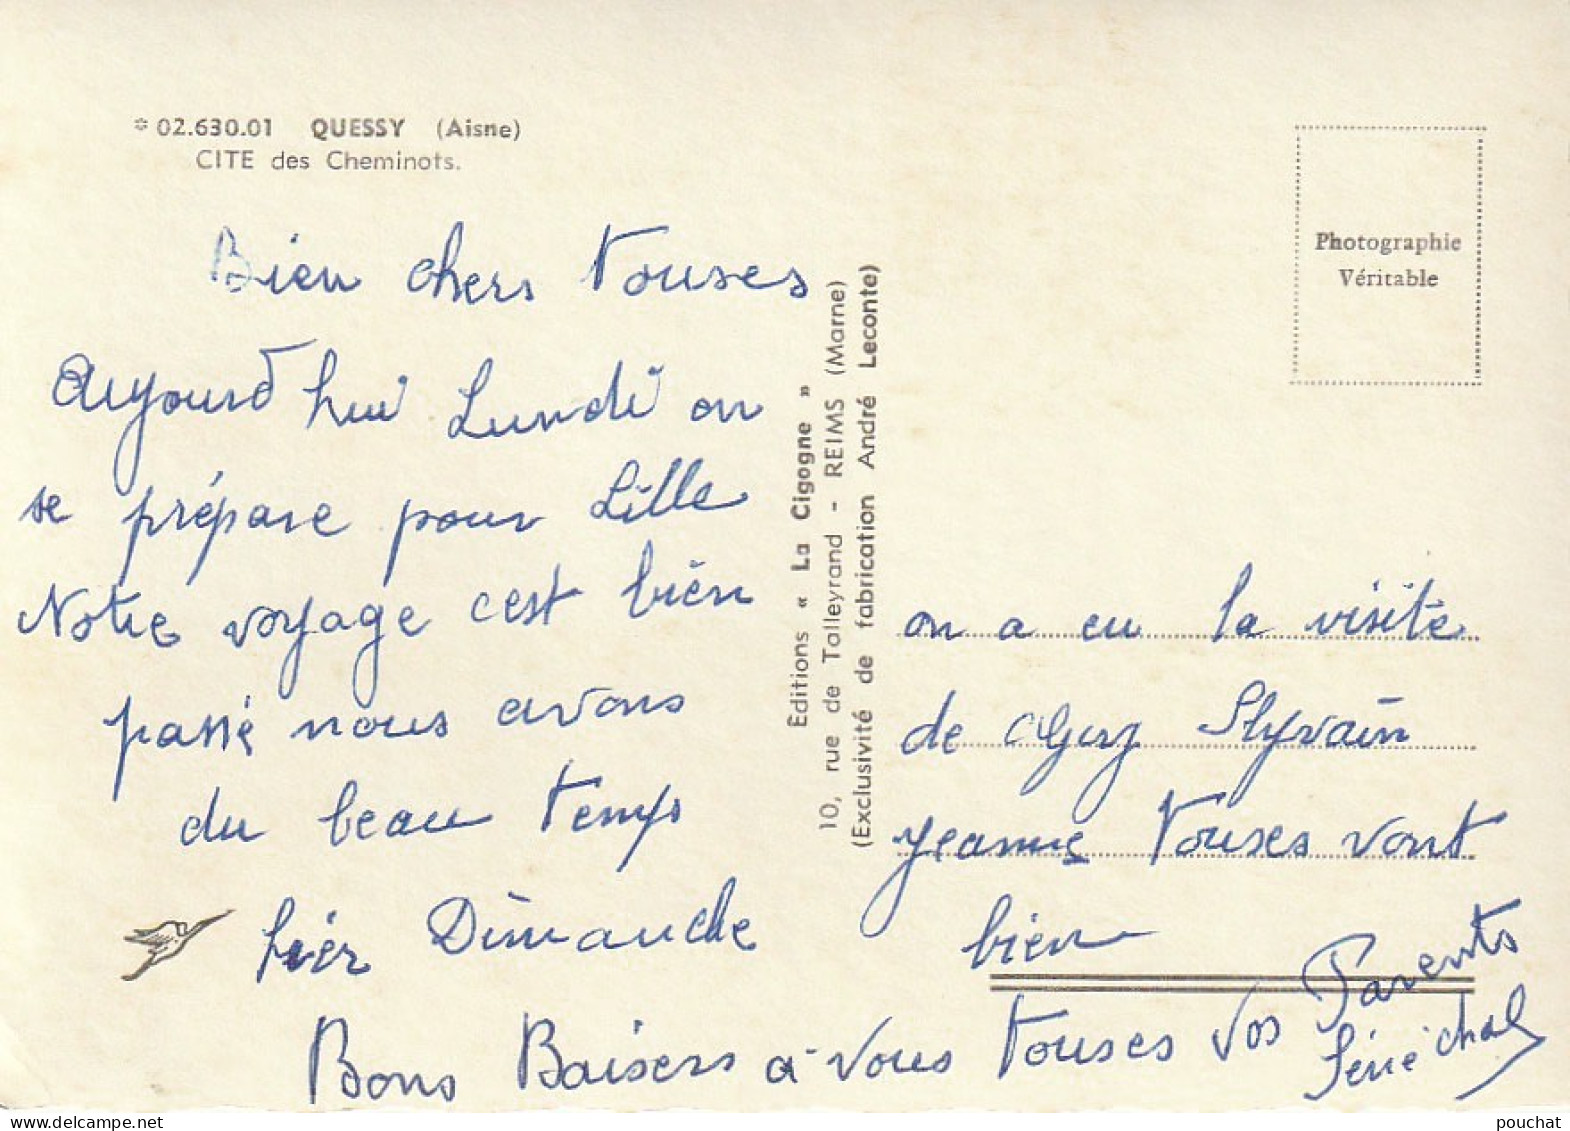 * 02.630.01 QUESSY (Aisne)
CITE des Cheminots.
Bien chers Touses
Aujourd hui Lundi on
se prépare pour Lille
Notre voyage cest bien
passé nous avons
du beau temps
hier Dimanche
Bons Baisers a vous Touses vos Parents
Sénéchal
Editions « La Cigogne »
10, rue de Talleyrand - REIMS (Marne)
(Exclusivité de fabrication André Leconte)
Photographie
Véritable
on a eu la visite
de Guy Slyvain
jeanne Touses vont
bien
pouchat